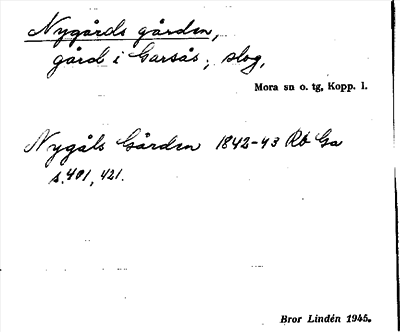 Nygårds gården,
gård i Garsås, slog,
Mora sn o. tg, Kopp. l.
Nygåls Gården 1842-43 Rb Ga
s. 401, 421.
Bror Lindén 1945.